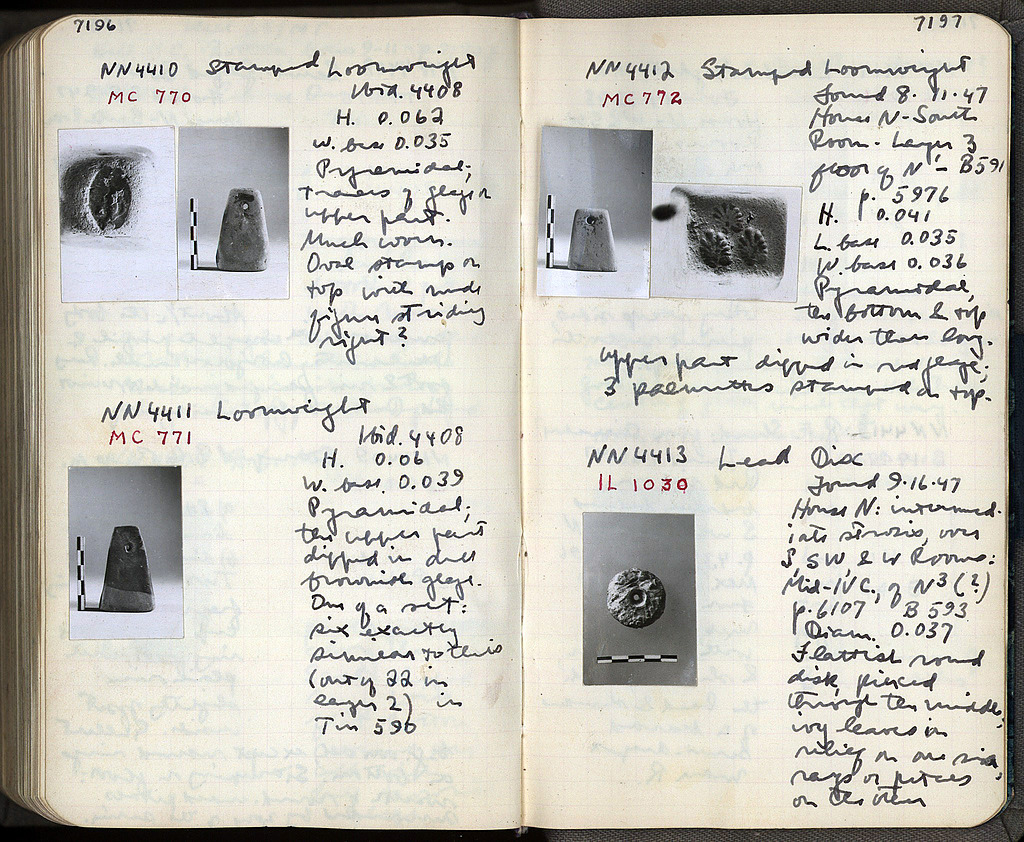 7196
NN4410 Stamped Loomweight
MC 770
Ibid. 4408
H. 0.062
W. base 0.035
Pyramidal;
traces of glaze on
upper part.
Much worn.
Oval stamp on
top with nude
figure striding
right?
NN4411 Loomweight
MC 771
Ibid. 4408
H. 0.06
W. base 0.039
Pyramidal;
the upper part
dipped in dull
brownish glaze.
One of a set:
six exactly
similar to this
(out of 22 in
layer 2) in
Tin 590
7197
NN4412 Stamped Loomweight
MC 772
Found 8.11.47
House N-South
Room-Layer 3
floor of N' - B591
p. 5976
H. 0.041
L. base 0.035
W. base 0.036
Pyramidal,
the bottom & top
wider than long.
upper part dipped in red glaze;
3 palmettes stamped on top.
NN4413 Lead Disc
IL 1030
Found 9.16.47
House N: intermed-
iate strosis, over
3, SW, & W Rooms:
Mid-IVC, of N³ (?)
p. 6107 B 593
Diam. 0.037
Flattish round
disk, pierced
through the middle,
ivy leaves in
relief on one side,
rays or petals
on the other